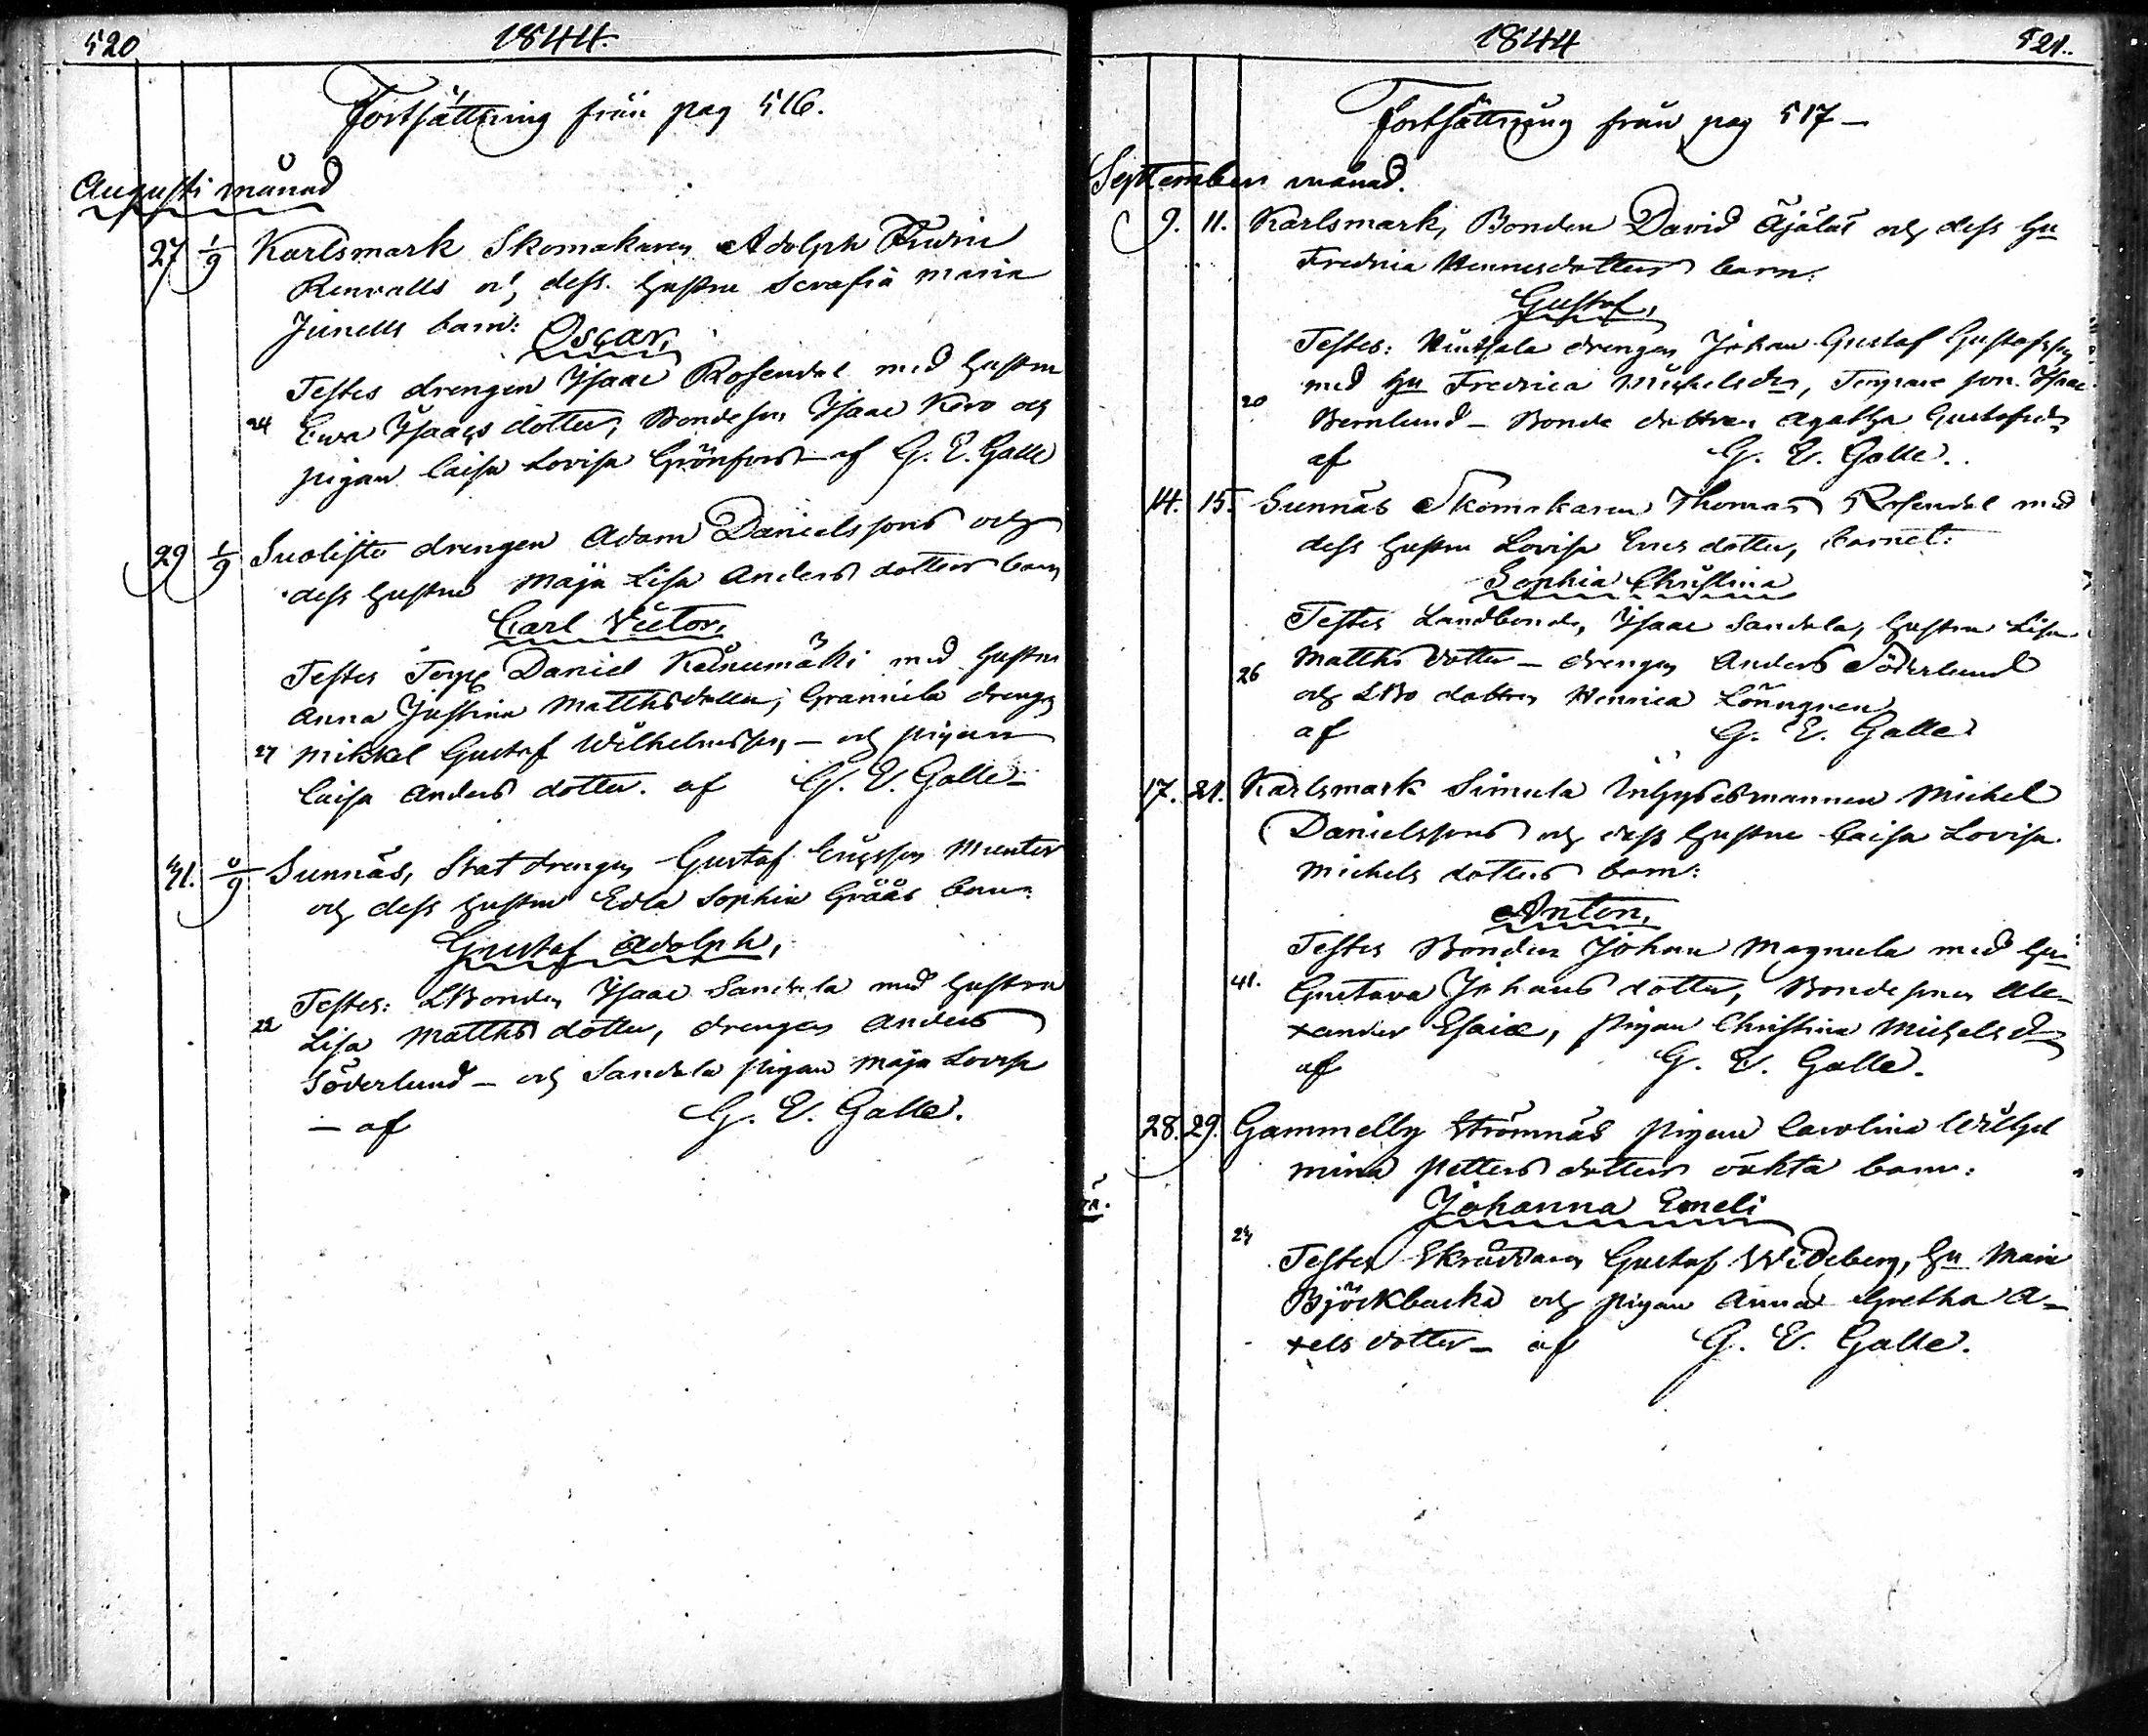 520
1844.
Fortsättning från pag 516.
Augusti månad
27 1/9 Karlsmark Skomakaren Adolph
Renvalls och dess hustru Serafia Maria
Junells barn: Oscar,
Testes drengen Isaac Rosendal med hustru
24 Ewa Isaacs dotter, Bondeson Isaac Kero och
pigan Caisa Lovisa Grönfors af G. E. Galle
29 1/9 Suolisto drengen Adam Danielssons och
dess hustrus Maja Lisa Anders dotters barn
Carl Victor,
Testes Torp Daniel med hustru
Anna Justina Matthsdotter, Grannila drengen
27 Mikkel Gustaf Wilhelmsson, – och pigan
Caisa Anders dotter. af G. E. Galle –
31. 8/9 Sunnäs, Statdrengen Gustaf Ericsson Munter
och dess hustru Edla Sophia Gråås barn:
Gustaf Adolph,
Testes: LBonden Isaac Sandela med hustru
22 Lisa Matths dotter, drengen Anders
Söderlund – och Sandela pigan Maja Lovisa
– af G. E. Galle.
1844
521.
Fortsättning från pag 517 –
September månad.
9. 11. Karlsmark, Bonden David Äjälä och dess hu
Fredrica Hennesdotters barn:
Gustaf,
Testes: drengen Johan Gustaf Gustafsson
med hu Fredrica Michelsdr, Torpare son Isaac
20 Bernlund – Bonde dottren Agatha Gustafsdr
af G. E. Galle.
14. 15. Sunnäs Skomakaren Thomas Rosendal med
dess hustru Lovisa Erics dotter, barnet:
Sophia Christina
Testes Landbonde, Isaac Sandela, hustru Lisa
26 Matths dotter – drengen Anders Söderlund
och LBo dottren Henrica Lönngren
af G. E. Galle
17. 21. Karlsmark Simula Inhysesmannen Michel
Danielssons och dess hustru Caisa Lovisa
Michels dotters barn:
Anton,
Testes Bonden Johan Magnula med hu
41. Gustava Johans dotter, Bondesonen Ale-
xander Esaiæ, pigan Christina Michelsdr
af G. E. Galle.
28. 29. Gammelby Strömnäs pigan Carolina Wilhel
mina Petters dotters oäkta barn:
Johanna Emeli
24
Testes Skräddaren Gustaf Wideberg, hu Maria
Björkbacka och pigan Anna Gretha A-
xels dotter – af G. E. Galle.